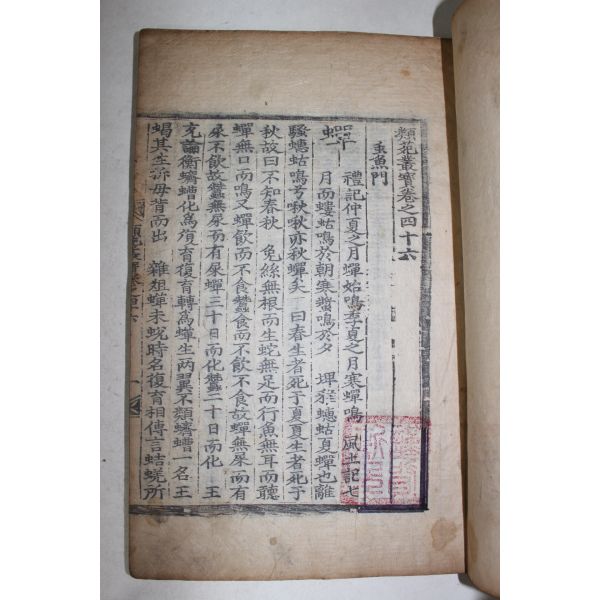 類苑叢寶卷之四十六
虫魚門
蟬 禮記仲夏之月蟬始鳴孟夏之月寒蟬鳴 風土記七
月而螻蛄鳴於朝寒螿鳴於夕 埤雅蟪蛄夏蟬也離
騷蟪蛄鳴兮啾啾亦秋蟬矣一曰春生者死于夏夏生者死于
秋故曰不知春秋 兔絲無根而生蛇無足而行魚無耳而聽
蟬無口而鳴又蟬飲而不食蠶食而不飲不食故蟬無屎而有
尿不飲故蠶無尿而有屎蟬三十日而化蠶二十日而化 王
充論衡蠐螬化爲復育復育轉爲蟬生兩翼不類蠐螬一名王
蝎其生㳽毋背而出 雜俎蟬未蛻時名復育相傳言蛣蜣所